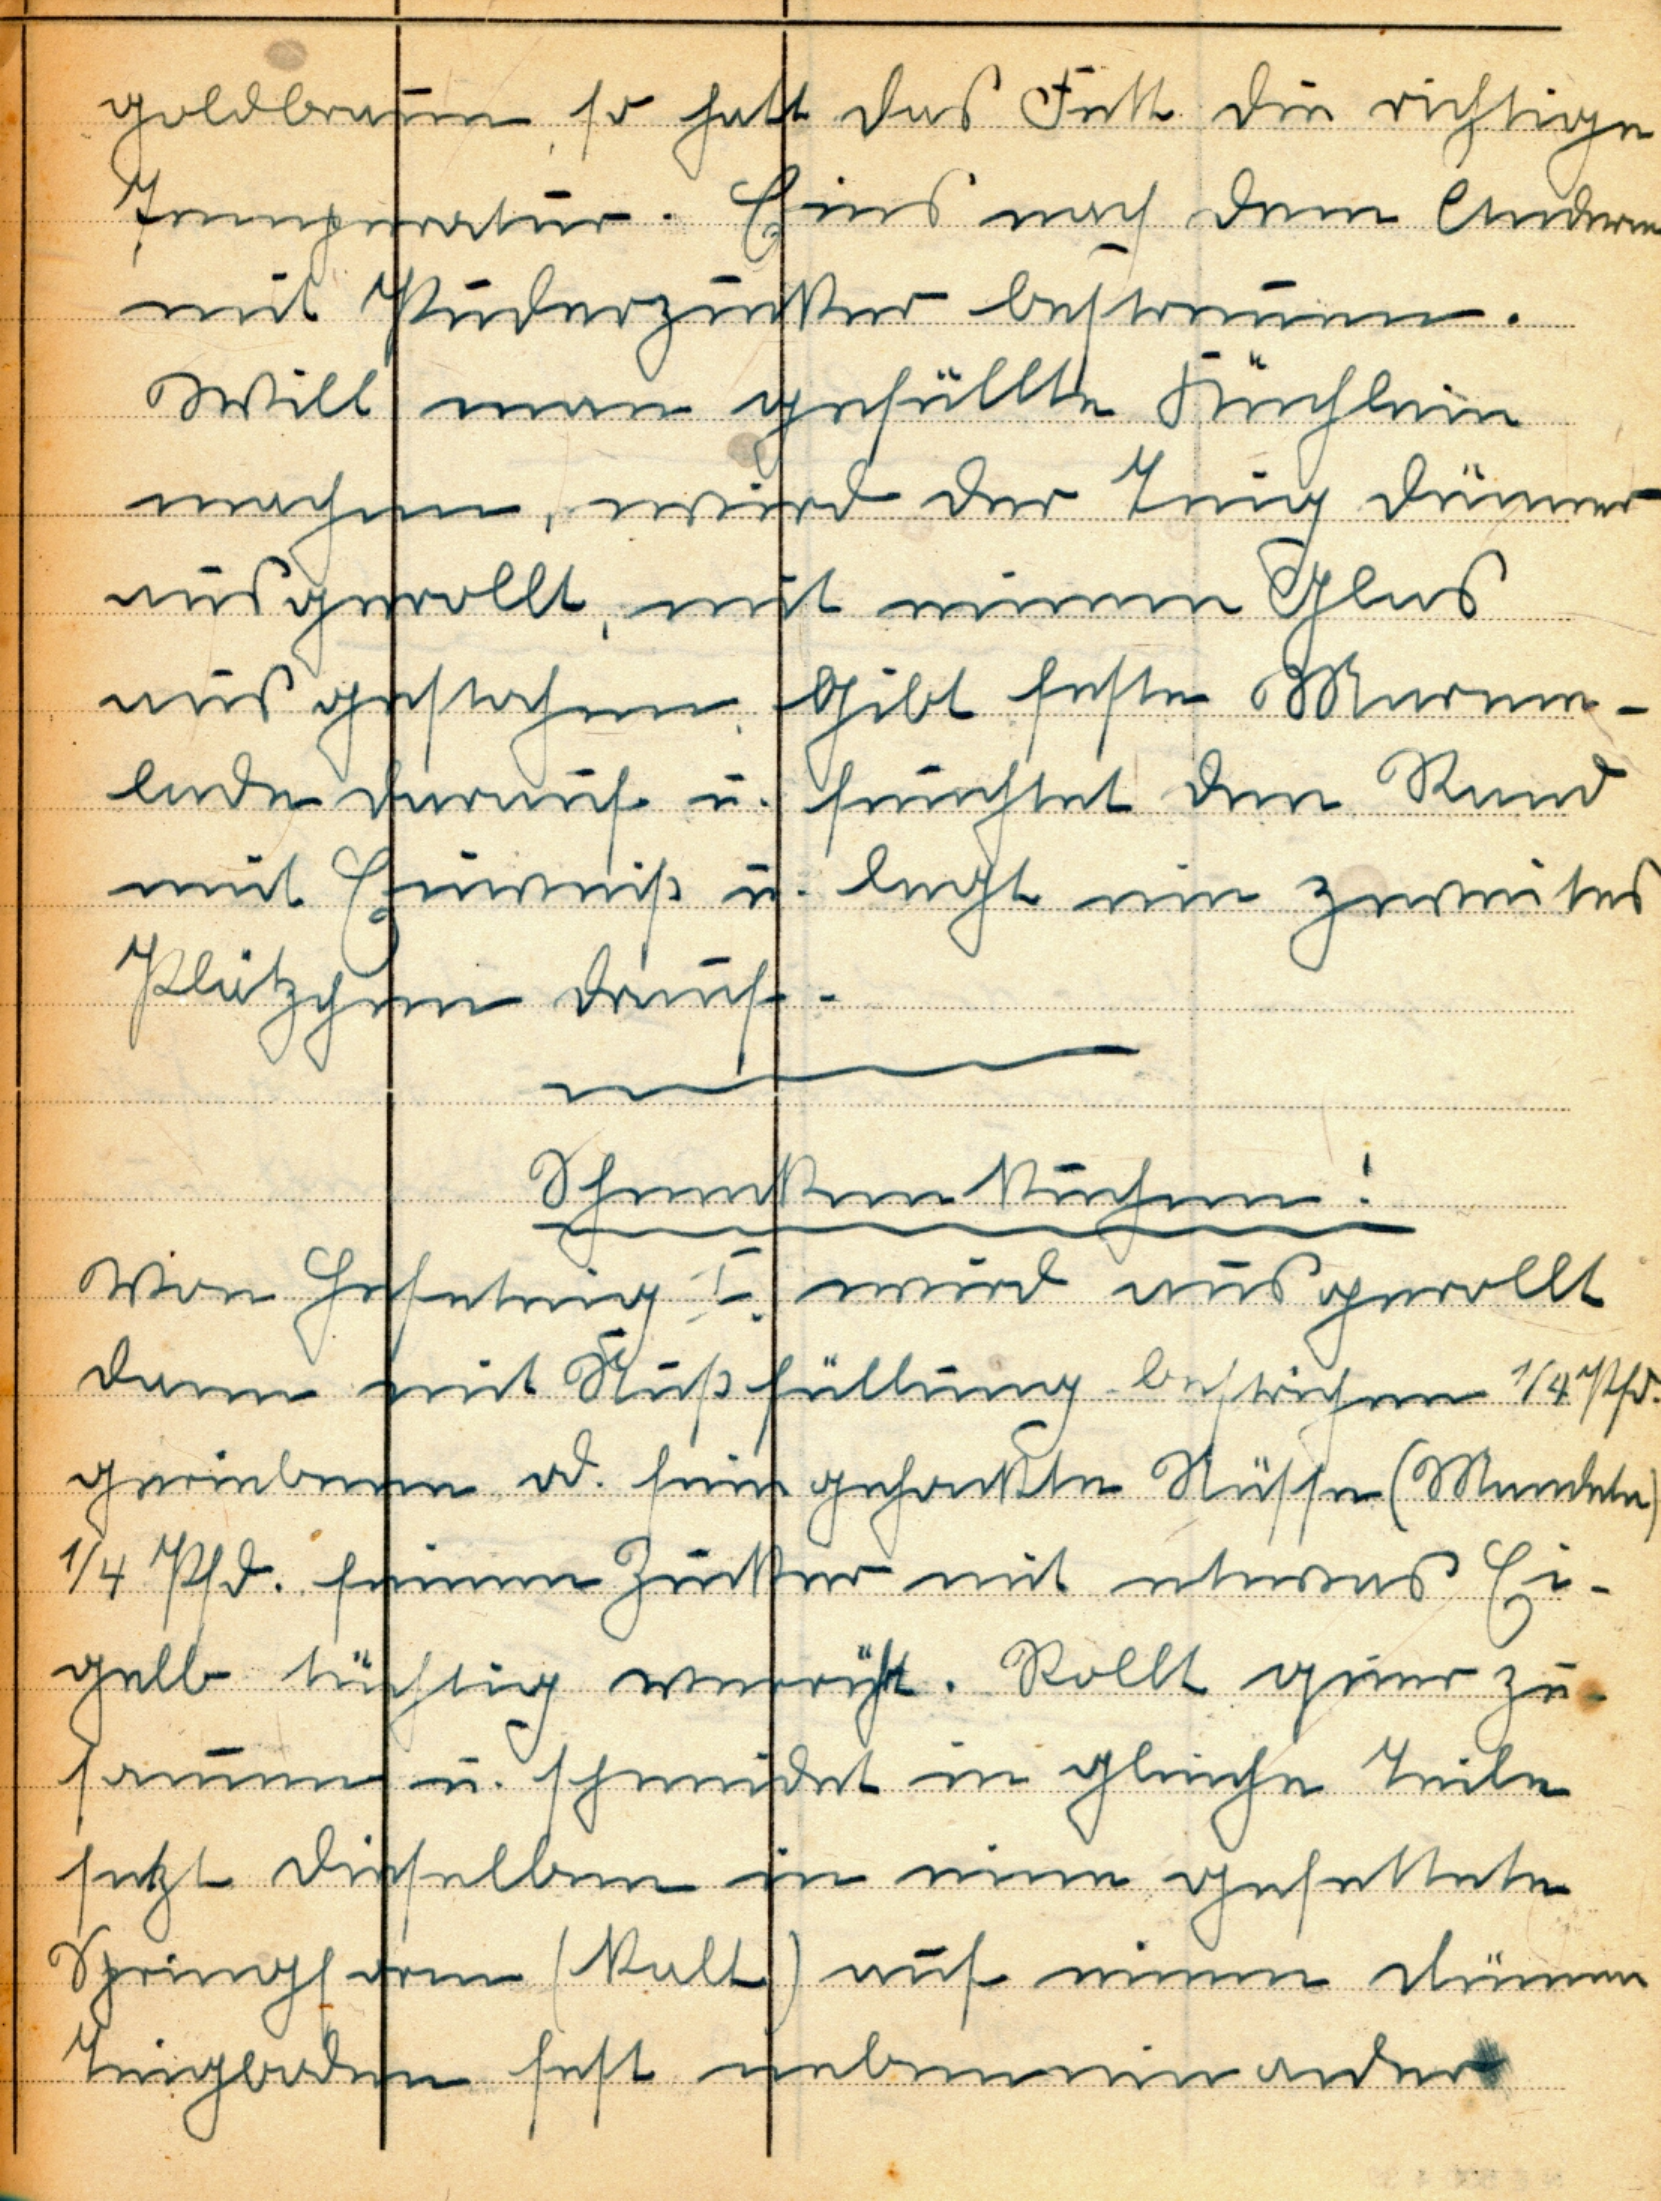 goldbraun, so hatt das Fett die richtige
Temperatur. Eins nach dem Anderen
mit Puderzucker bestreuen.
Will man gefüllte Küchlein
machen, wird der Teig dünner
ausgerollt, mit einem Glas
ausgestochen, gibt feste Marme-
lade darauf u. feuchtet den Rand
mit Eiweiß u. legt ein zweites
Plätzchen drauf.
Schneckenkuchen!
Von Hefeteig I. wird ausgerollt
dann mit Nußfüllung bestrichen 1/4 Pfd.
geriebene od. fein gehackte Nüsse (Mandeln)
1/4 Pfd. feinen Zucker mit etwas Ei-
gelb tüchtig verrührt. Rollt quer zu-
sammen u. schneidet in gleiche Teile
setzt dieselben in eine gefettete
Springform (kalt) auf einen dünnen
Teigboden fest nebeneinander